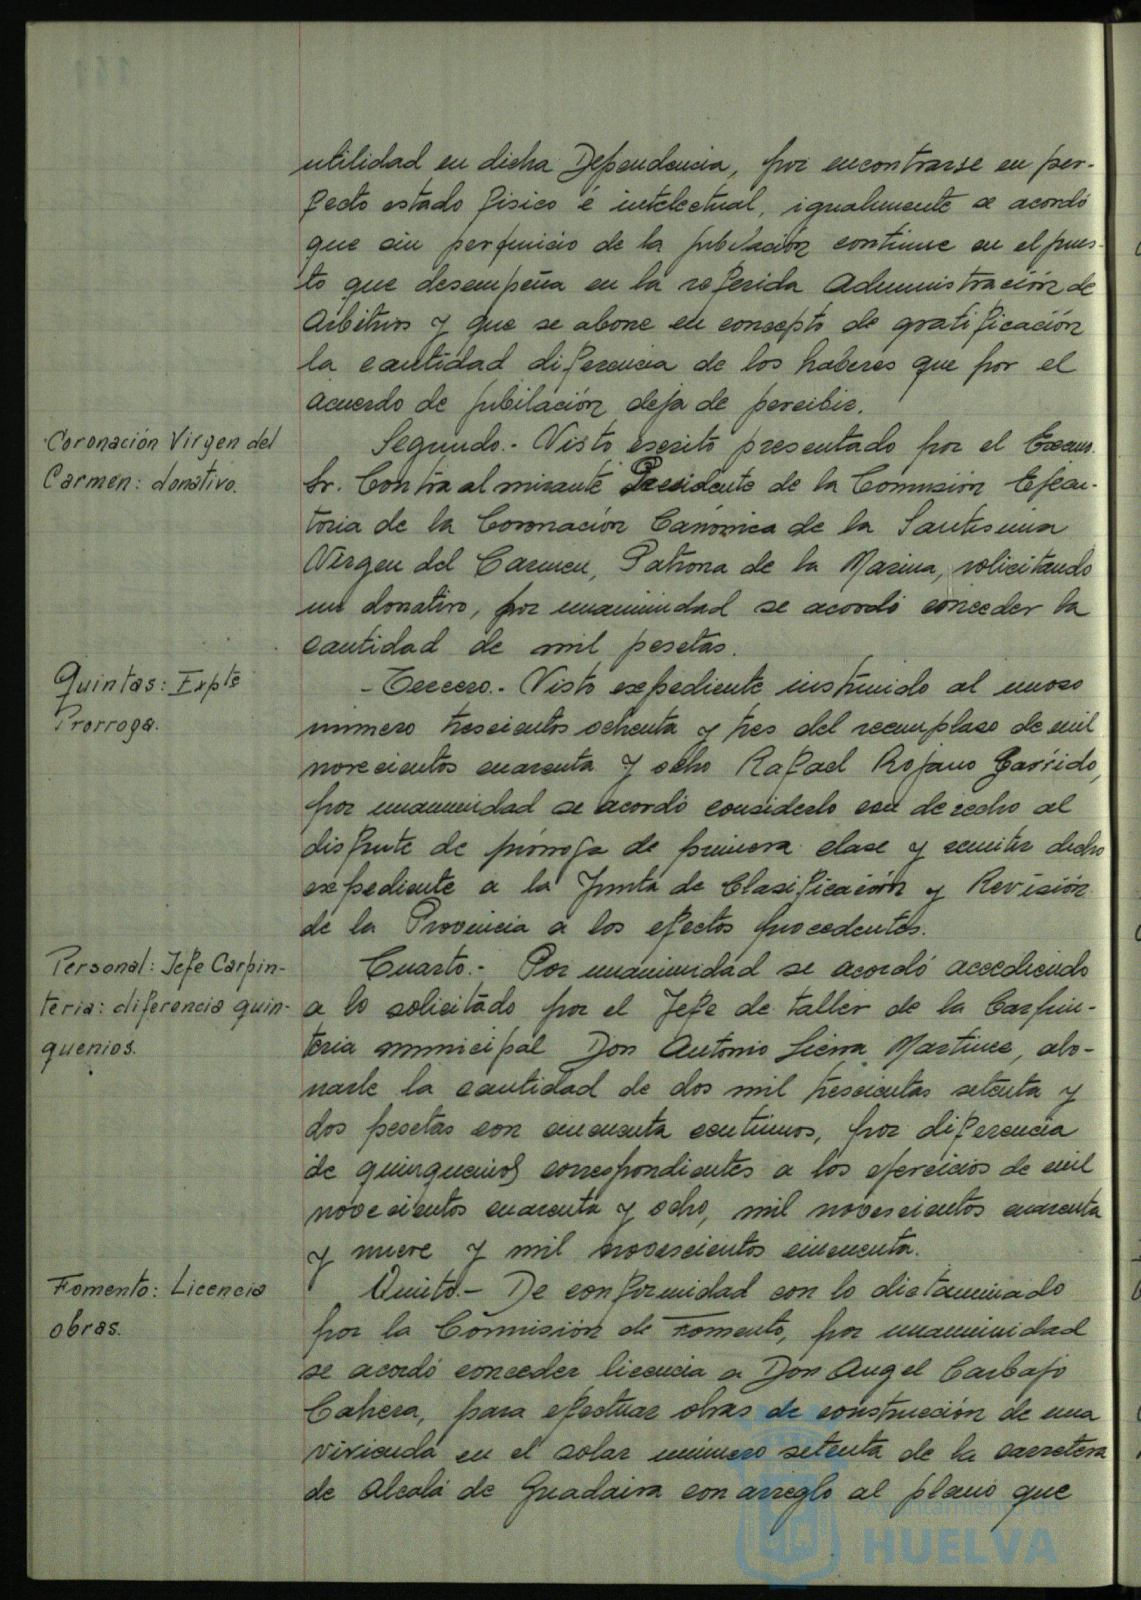 utilidad en dicha Dependencia, por encontrarse en per-
fecto estado fisico é intelectual, igualmente se acordó
que sin perjuicio de la jubilación continue en el pues-
to que desempeña en la referida Administración de
Arbitrios y que se abone en concepto de gratificación
la cantidad diferencia de los haberes que por el
acuerdo de jubilación deja de percibir.
Coronación Virgen del
Carmen: donativo.
Segundo.- Visto escrito presentado por el Excmo.
Sr. Contraalmirante Presidente de la Comisión Ejecu-
toria de la Coronación Canónica de la Santisima
Virgen del Carmen, Patrona de la Marina, solicitando
un donativo, por unanimidad se acordó conceder la
cantidad de mil pesetas.
Quintas: Expte
Prorroga.
-Tercero.- Visto expediente instruido al mozo
número trescientos ochenta y tres del reemplazo de mil
novecientos cuarenta y ocho Rafael Rojano Garrido,
por unanimidad se acordó considerlo con derecho al
disfrute de prórroga de primera clase y remitir dicho
expediente a la Junta de Clasificación y Revisión
de la Provincia a los efectos procedentes.
Personal: Jefe Carpin-
teria: diferencia quin-
quenios.
Cuarto.- Por unanimidad se acordó accediendo
a lo solicitado por el Jefe de taller de la Carpin-
teria municipal Don Antonio Sierra Martinez, abo-
narle la cantidad de dos mil trescientas setenta y
dos pesetas con cincuenta centimos, por diferencia
de quinquenios correspondientes a los ejercicios de mil
novecientos cuarenta y ocho, mil novescientos cuarenta
y nueve y mil novescientos cincuenta.
Fomento: Licencia
obras.
Quinto.- De conformidad con lo dictaminado
por la Comisión de Fomento, por unanimidad
se acordó conceder licencia a Don Angel Carbajo
Cahera, para efectuar obras de construcción de una
vivienda en el solar número setenta de la carretera
de Alcalá de Guadaira con arreglo al plano que
Ayuntamiento de
HUELVA